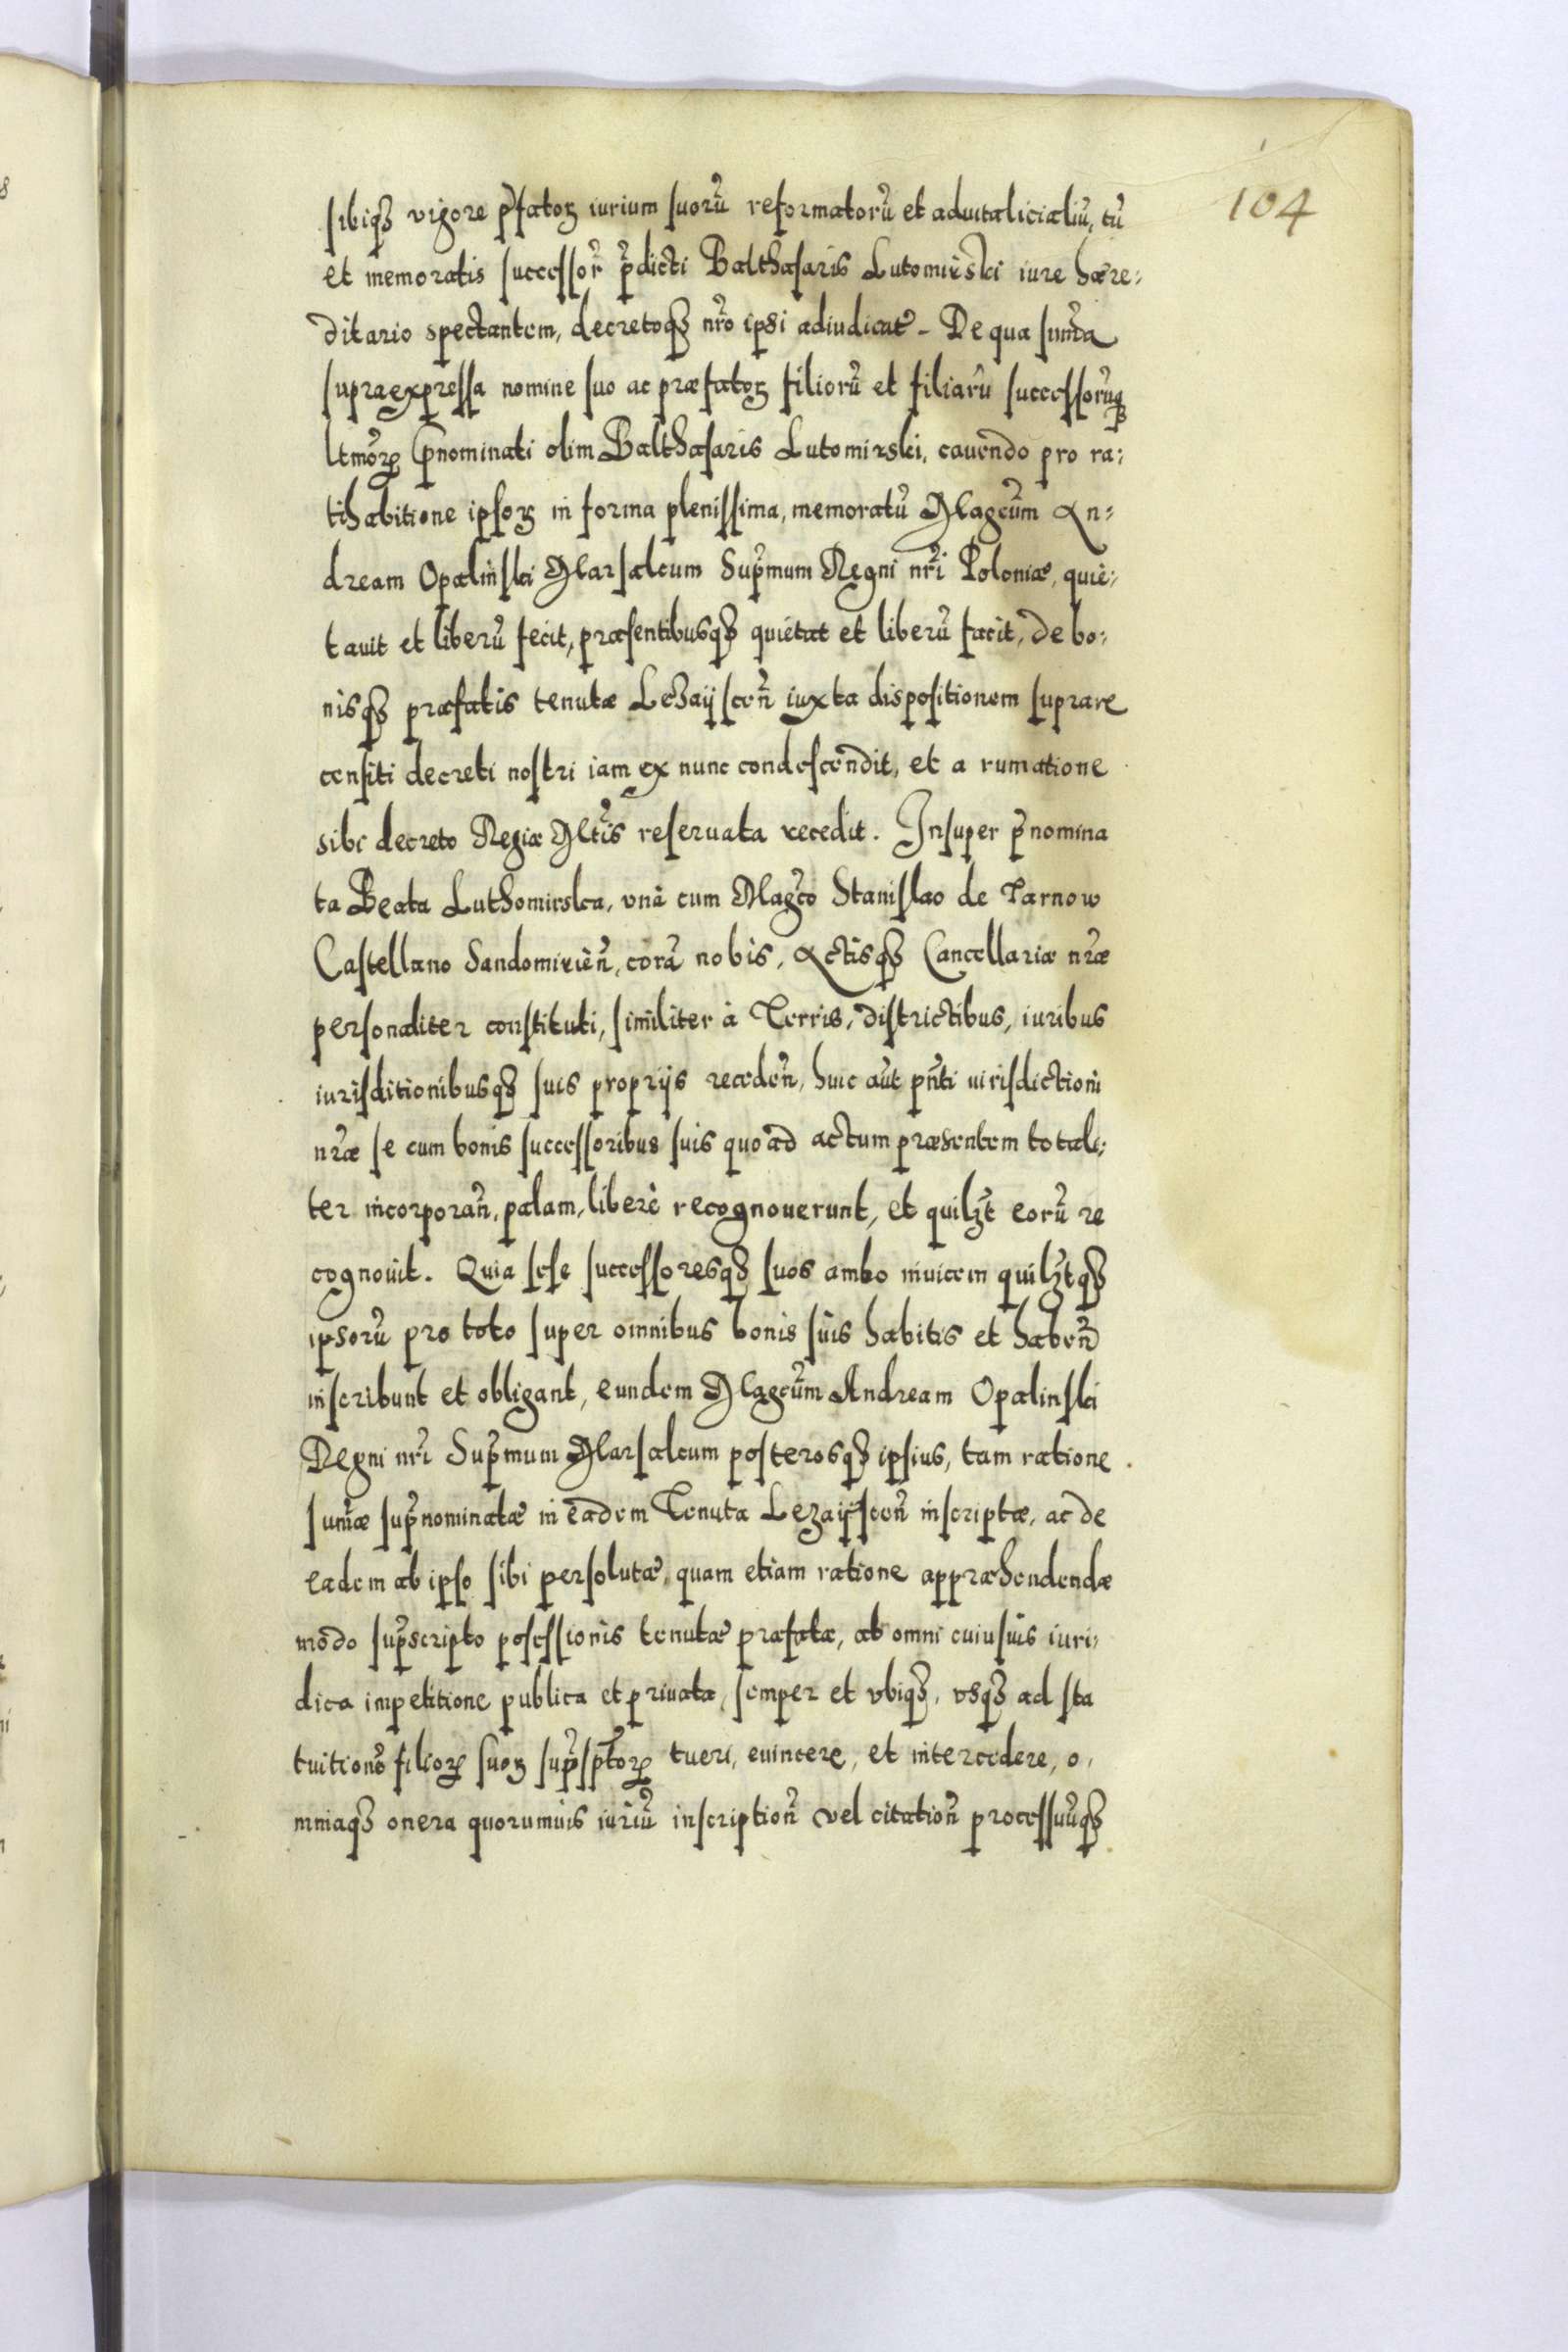 104
sibiqȝ vigore p̃fatoꝝ iurium suorũ reformatorũ et aduitalicialiũ, tũ
et memoratis successor̃ p̃dicti Balthasaris Lutomirski iure hære-
ditario spectantem, decretoqȝ nr̃o ipsi adiudicat̃ - De qua sum̃a
supraexpressa nomine suo ac præfatoꝝ filiorũ et filiarũ successorũqȝ
ltm̃oꝝ p̃nominati olim Balthasaris Lutomirski, cauendo pro ra-
tihabitione ipsoꝝ in forma plenissima, memoratũ Magcũm An-
dream Opalinski Marsalcum Sup̃mum Regni nr̃i Poloniæ, quie-
tauit et liberũ fecit, præsentibusqȝ quietat et liberũ facit, de bo-
nisqȝ præfatis tenutæ Lezaijscen̄ iuxta dispositionem suprare
censiti decreti nostri iam ex nunc condescendit, et a rumatione
sibi decreto Regiæ Mtis̃ reseruata recedit. Insuper p̃nomina
ta Beata Luthomirska, vnà cum Magc̃o Stanislao de Tarnow
Castellano Sandomirien̄, corã nobis, Actisqȝ Cancellariæ nr̃æ
personaliter constituti, similiter à Terris, districtibus, iuribus
iurisditionibusqȝ suis proprijs receden̄, huic aũt pñti iurisdictioni
nr̃æ se cum bonis successoribus suis quo ad actum præsentem totali-
ter incorporan̄, palam, liberè recognouerunt, et quilȝt eorũ re
cognouit. Quia sese successoresqȝ suos ambo inuicem quilȝtqȝ
ipsorũ pro toto super omnibus bonis suis habitis et haben̄d
inscribunt et obligant, eundem Magcũm Andream Opalinski
Regni nr̃i Sup̃mum Marsalcum posterosqȝ ipsius, tam ratione
sum̃æ sup̃nominatæ in eadem Tenuta Lezaijscen̄ inscriptæ, ac de
eadem ab ipso sibi persolutæ, quam etiam ratione appræhendendæ
modo sup̃scripto posessionis tenutæ præfatæ, ab omni cuiusuis iuri-
dica impetitione publica et priuata, semper et vbiqȝ, vsqȝ ad sta
tuitionẽ filioꝝ suoꝝ sup̃sptoꝝ tueri, euincere, et intercedere, o-
mniaqȝ onera quorumuis iuriũ inscription̄ vel citation̄ processuũqȝ